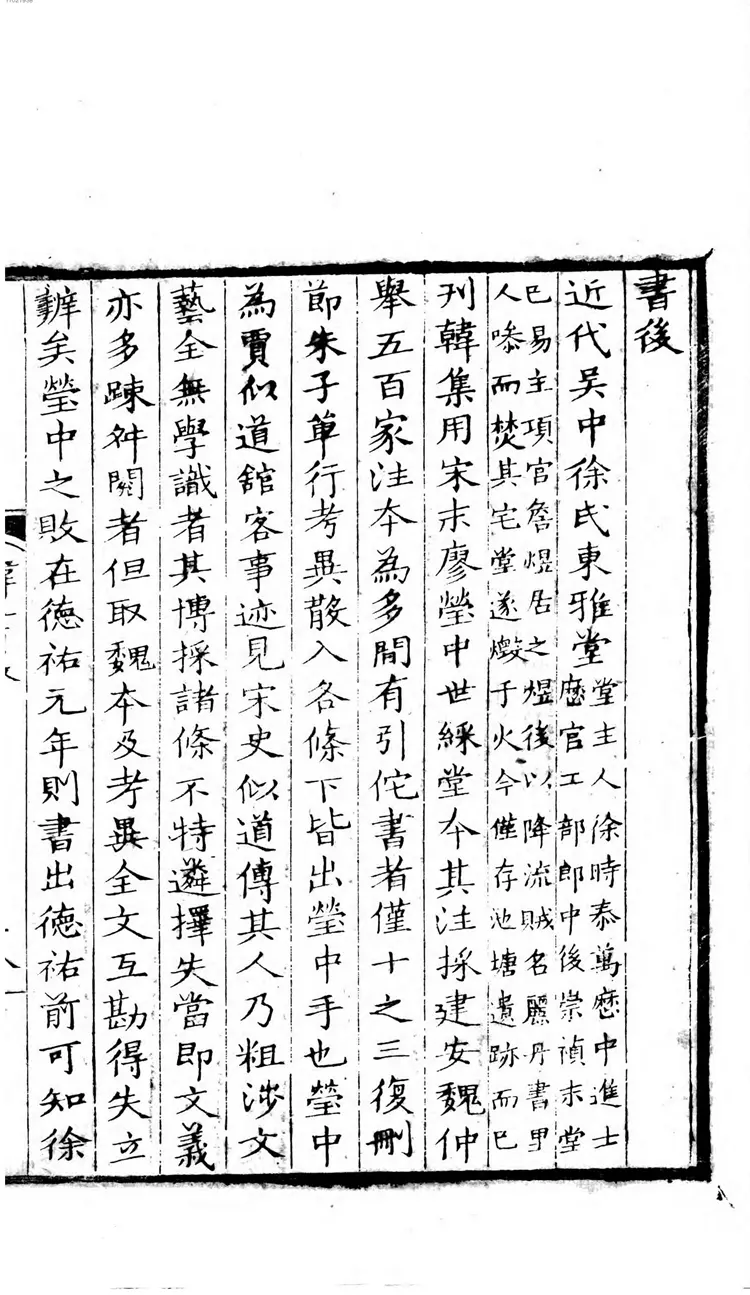 書後
近代吳中徐氏東雅堂堂主人徐時泰萬厯中進士厯官工部郎中後崇禎末堂
已易主項官詹煜居之煜後以降流賊名麗丹書里人噪而焚其宅堂遂燬于火今僅存池塘遺跡而已
刊韓集用宋末廖瑩中世綵堂本其注採建安魏仲
舉五百家注本為多間有引佗書者僅十之三復刪
節朱子單行考異散入各條下皆出瑩中手也瑩中
為賈似道舘客事迹見宋史似道傳其人乃粗涉文
藝全無學識者其博採諸條不特遴擇失當即文義
亦多踈舛閱者但取魏本及考異全文互勘得失立
辨矣瑩中之敗在德祐元年則書出德祐前可知徐